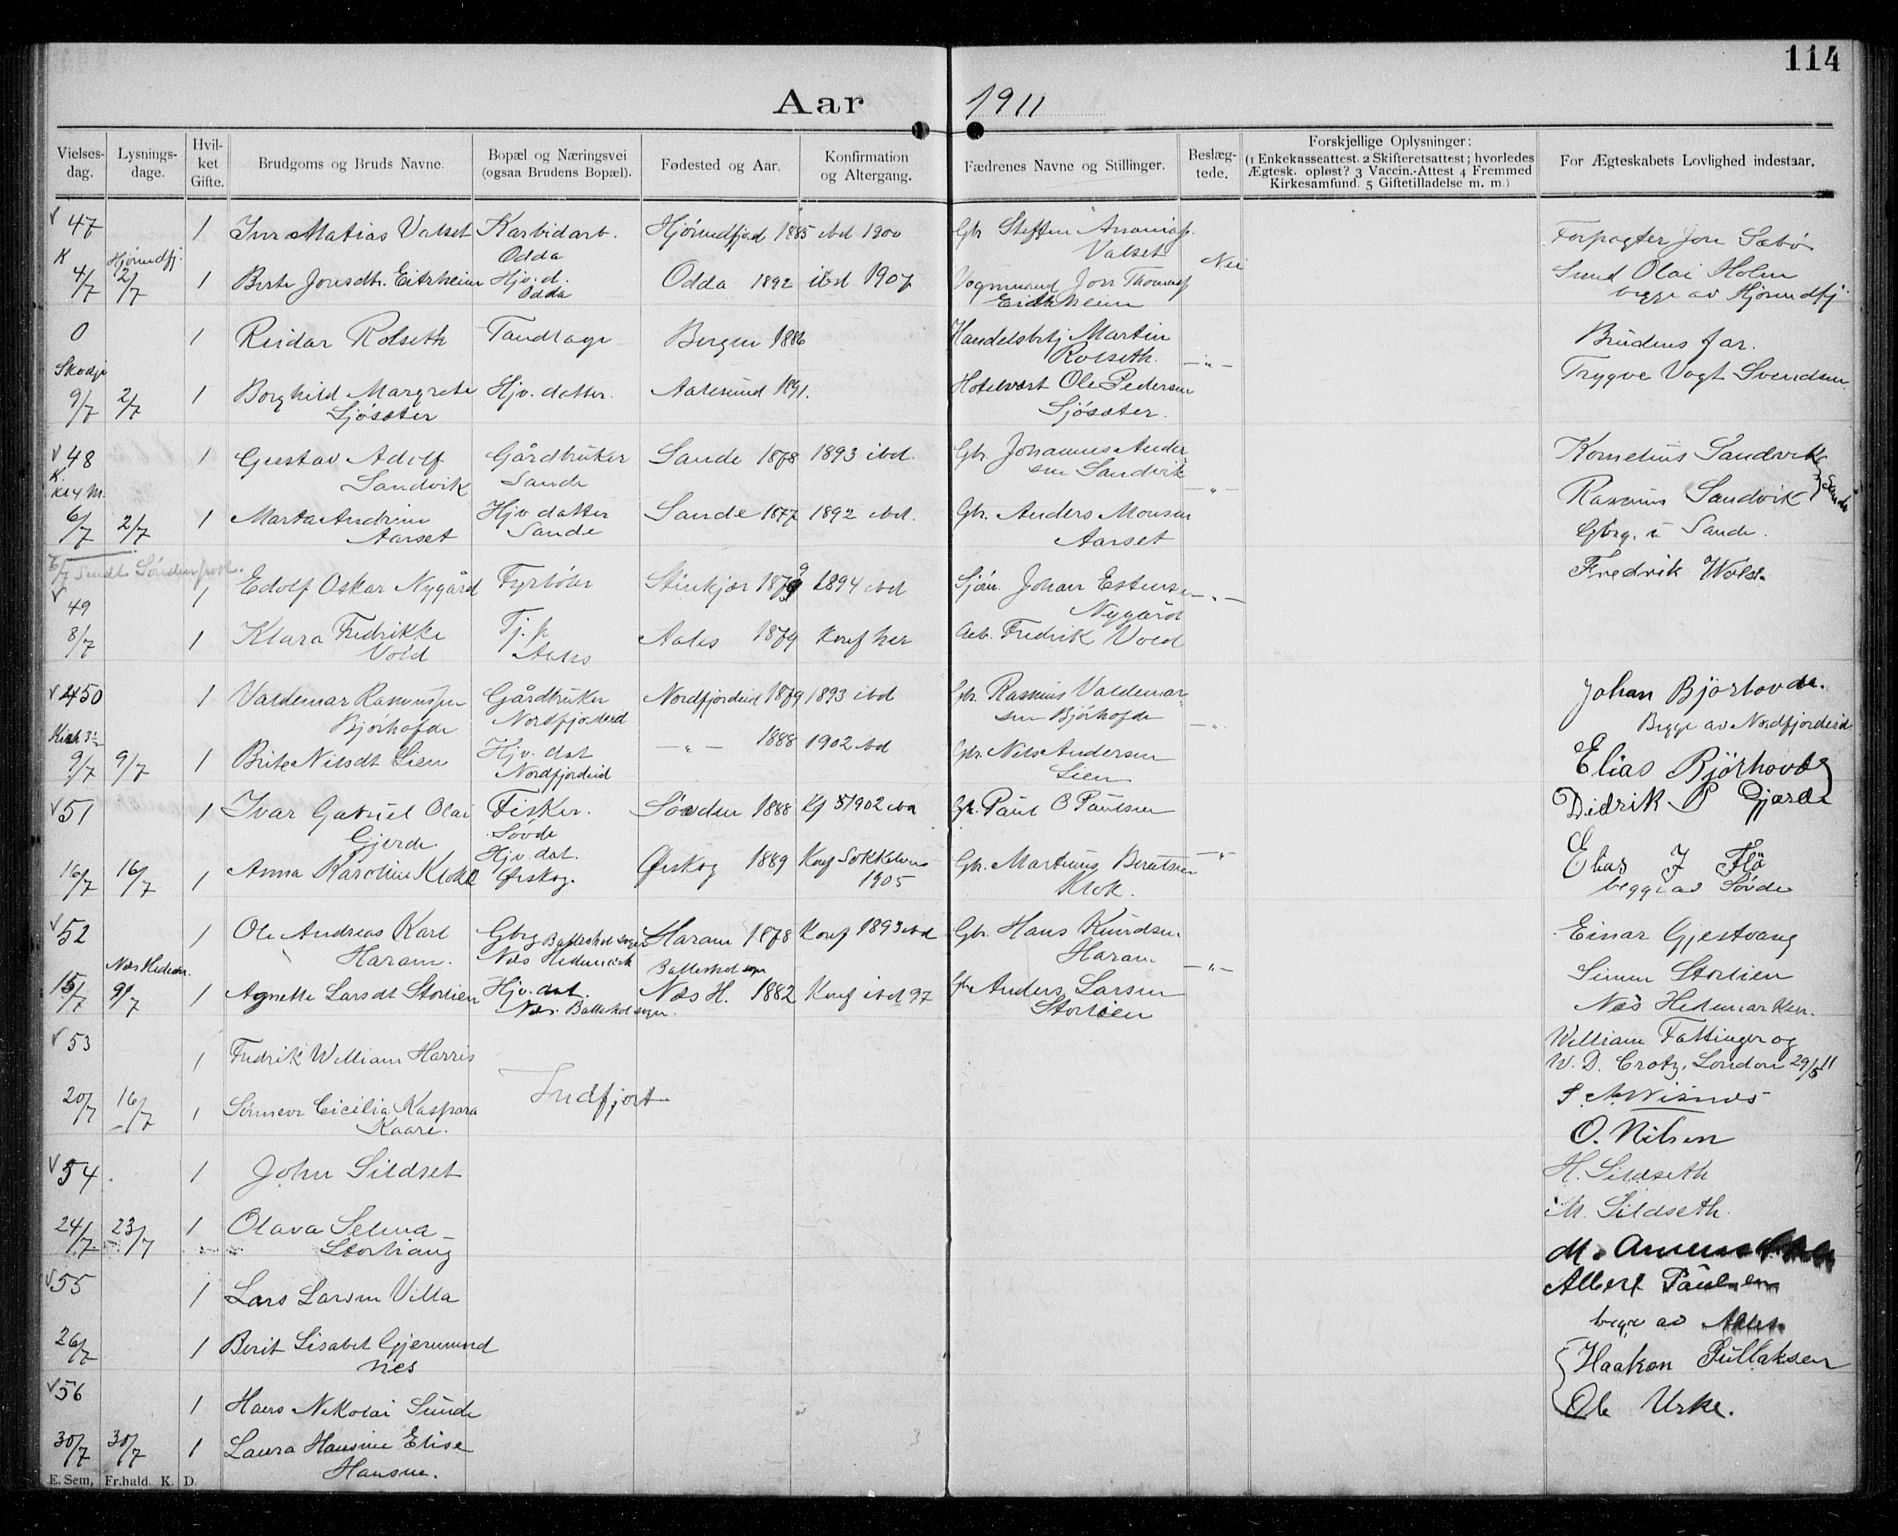 114
Aar 1911
Vielses-dag. Lysnings-dage. Hvil-ket Gifte. Brudgoms og Bruds Navne. Bopæl og Næringsvei (ogsaa Brudens Bopæl). Fødested og Aar. Konfirmation og Altergang. Fædrenes Navne og Stillinger. Beslæg-tede. Forskjellige Oplysninger: (1 Enkekasseattest. 2 Skifteretsattest; hvorledes Ægtesk. opløst? 3 Vaccin.-Attest 4 Fremmed Kirkesamfund. 5 Giftetilladelse m. m.) For Ægteskabets Lovlighed indestaar.
47 1 Matias Valset Karbidarb. Hjörundfjord 1885 ibd 1900 Gbr Steffen Forpagter Jon Sæbö
Odda Valset Nei
K Hjörundfj.
4/7 2/7 1 Brite Jonsdtr. Eitrheim Hjv. d. Odda 1892 ibd 1907 Jon Thomas Olai Holm
Odda Eitrheim begge av Hjörundfj.
0 1 Reidar Rolseth Tandlæge Bergen 1886 Handelsbetj Martin Brudens far.
Skodje Rolseth. — " —
9/7 2/7 1 Borghild Margrete Hjv. datter. Aalesund 1891. Hotelvært Ole Pedersen Trygve Vogt Svendsen.
Sjösæter Sjösæter.
48 1 Gustav Adolf Gårdbruker Sande 1878 1893 ibd. Gbr. Johannes Ander Kornelius Sandvik
Sandvik Sande sen Sandvik — " —
K Kl 4 M. Rasmus Sandvik Sande
6/7 2/7 1 Marta Andrine Hjv datter Sande 1877 1892 ibd. Gbr. Anders Monsen Gbrg. i Sande.
Aarset Sande Aarset
1 Edolf Oskar Nygård Fyrböter Stenkjær 1879 1894 ibd Sjöm. Johan Estensen — " — Fredrik Wold
49 Nygård
8/7 1 Klara Fredrikke Tj. p. Aales 1879 Konf her Arb. Fredrik Vold
Vold Aales
450 1 Valdemar Rasmussen Gårdbruker Nordfjordeid 1879 1893 ibd Gbr. Rasmus Valdemar Johan Björhovde.
Björhofde Nordfjordeid sen Björhofde — " — Begge av Nordfjordeid
9/7 9/7 1 Brite Nilsdt Lien Hjv. dat — " — 1888 1902 ibd Gbr. Nils Andersen Elias Björhovde
Nordfjordeid Lien
51 1 Ivar Gabriel Olai Fisker. 1888 1902 Gbr. Paul O Paulsen Didrik P Gjærde
Gjerde. Sövde
Hjv. dat. — " —
16/7 16/7 1 Anna Karoline Klokk Ørskog. Ørskog 1889 Konf Sokkelven Gbr. Martinus Berntsen Elias J Flö
1905 Klok. begge av Sövde
52 1 Ole Andreas Karl Gbrg Balleshol sogn Haram 1878 Konf 1893 ibd Gbr. Hans Knudsen Einar Gjestvang
Haram. Næs Hedemark Haram — " —
Næs Hedem. Balleshol sogn Simen Storlien
15/7 9/7 1 Agnethe Larsdt Storlien Hjv. dat. Næs H. 1882 Konf ibd 97 Gbr. Anders Larsen Næs Hedemarken.
Næs. Balleshol sogn. Storlien
53 1 Fredrik William Harris William Fattinger og
W. D. Crotz, London 29/5 11
Indfjort
20/7 16/7 1 Cicilia Kaspara O. Nilsen
Kaare.
54 1 John Sildset H. Sildseth
M. Sildseth.
24/7 23/7 1 Olava Selma
55 1 Lars Larsen Villa Albert Paulsen
begge av Ales
26/7 1 Berit Lisabet Gjermund Haakon Sullaksen
nes
56 1 Hans Nikolai Sunde Ole Urke.
30/7 30/7 1 Laura Hansine Elise
Hansen.
E. Sem, Fr.hald. K. D.